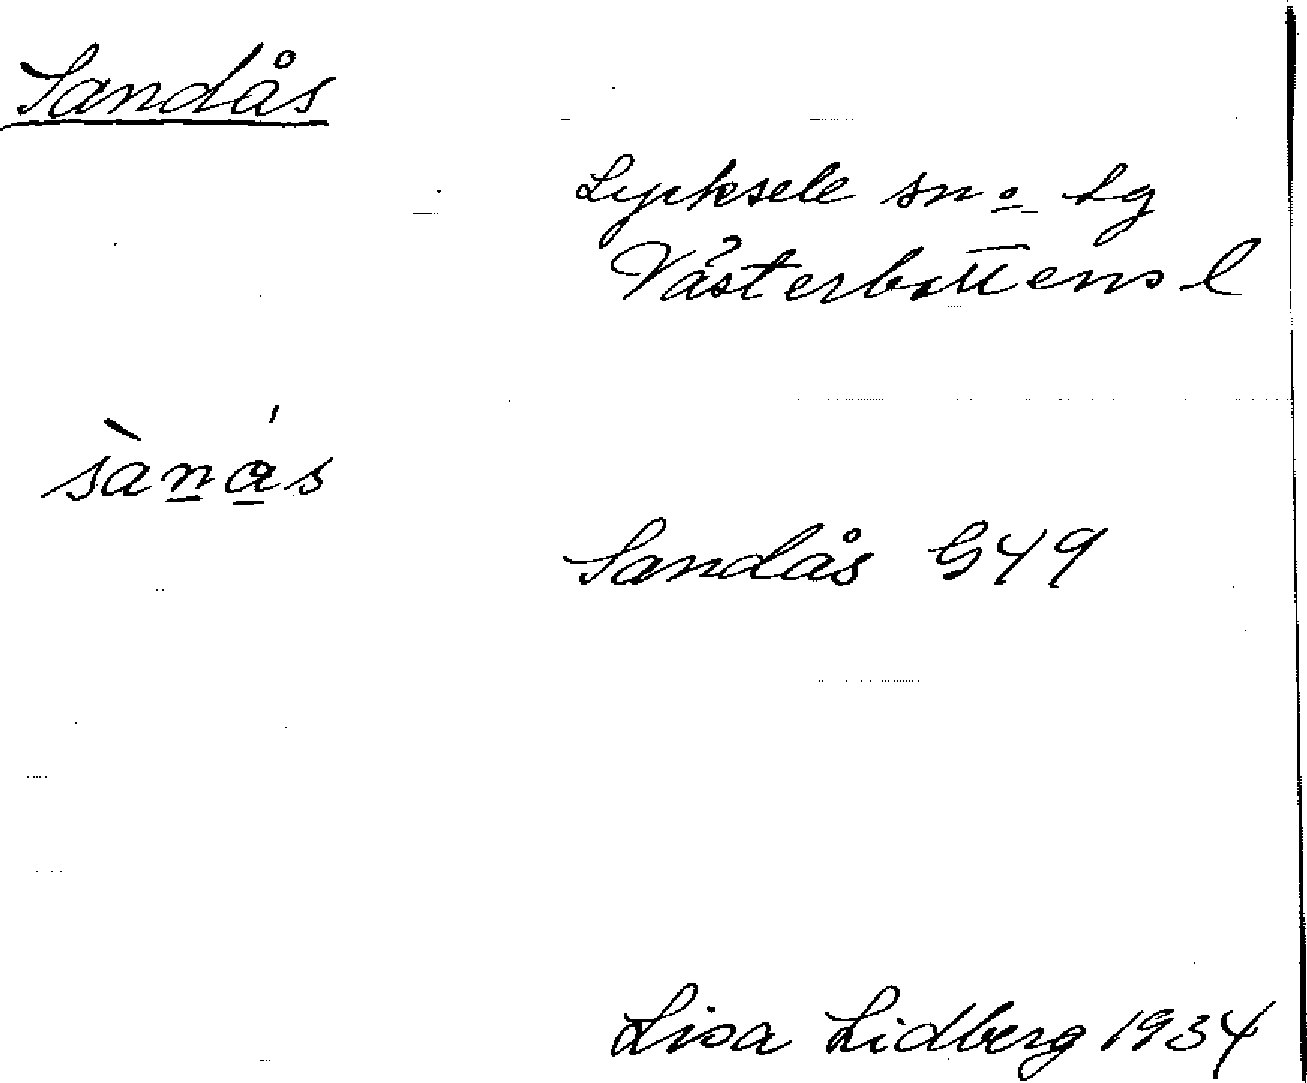 Sandås
Lycksele sn o. lg
Västerbottens l
sànás
Sandås G49
Lisa Lidberg 1934